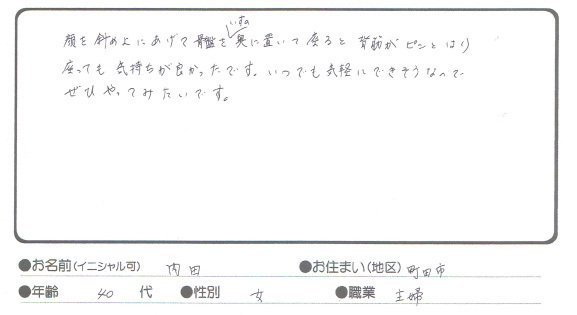 顔を斜め上にあげて骨盤をいすの奥に置いて座ると背筋がピンとはり
座っても気持ちが良かったです。いつでも気軽にできそうなので
ぜひやってみたいです。
●お名前(イニシャル可) 内田 ●お住まい(地区) 町田市
●年齢 40 代 ●性別 女 ●職業 主婦